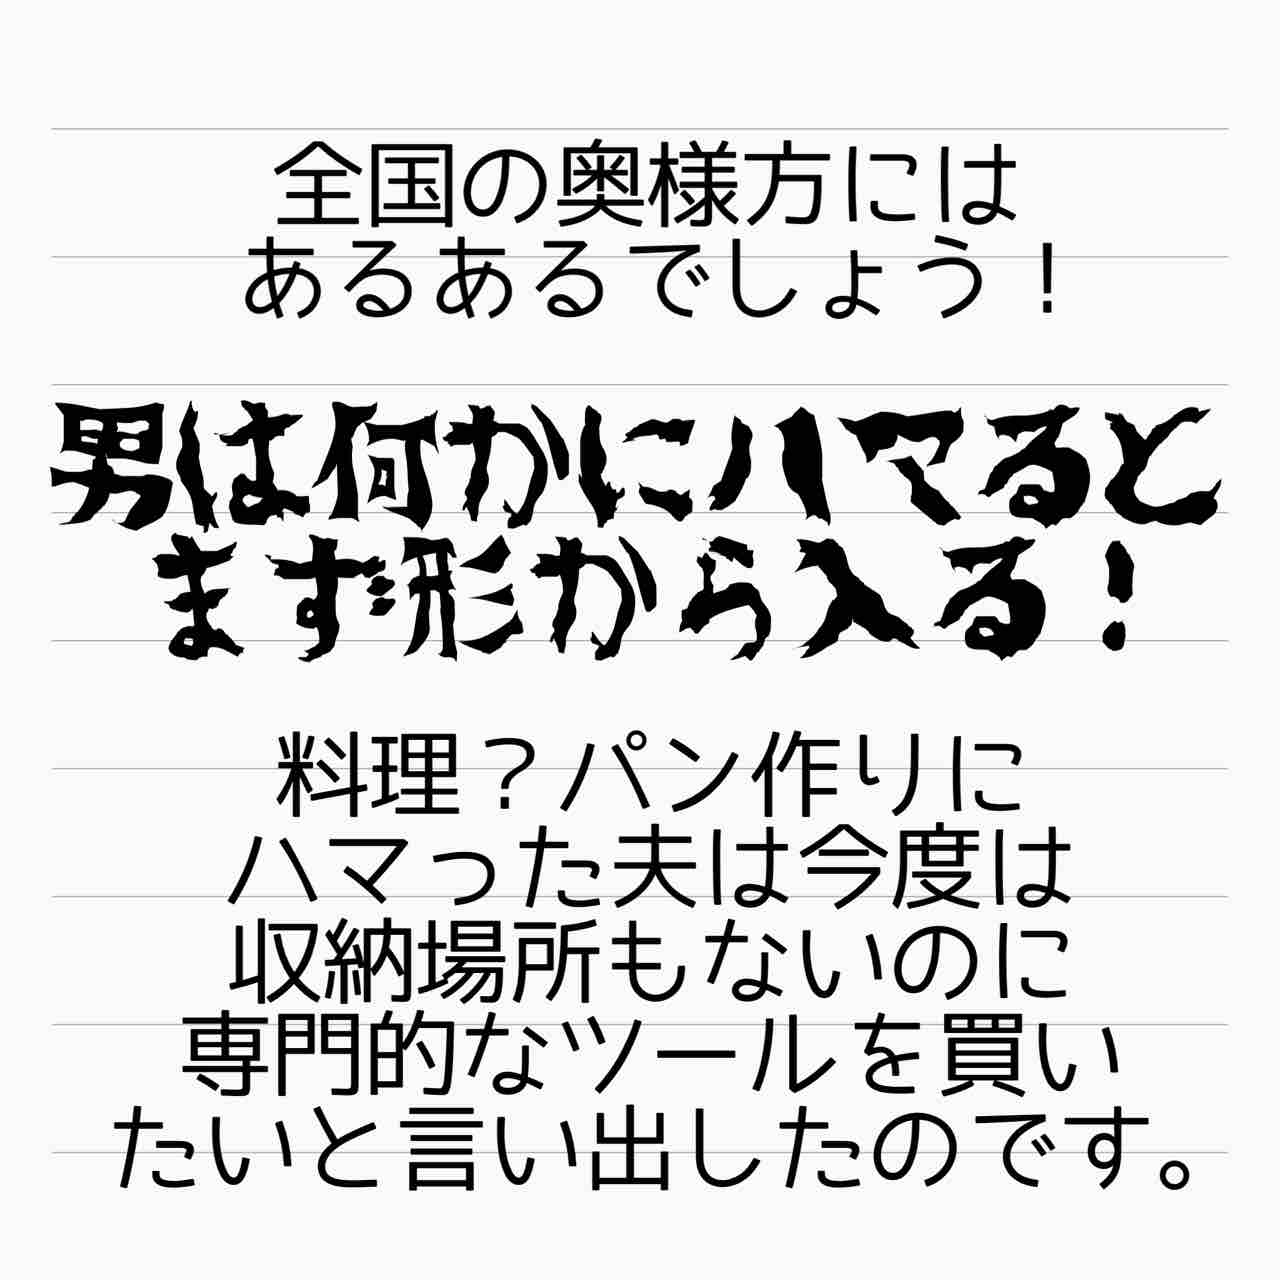 全国の奥様方には
あるあるでしょう！
男は何かにハマると
まず形から入る！
料理？パン作りに
ハマった夫は今度は
収納場所もないのに
専門的なツールを買い
たいと言い出したのです。